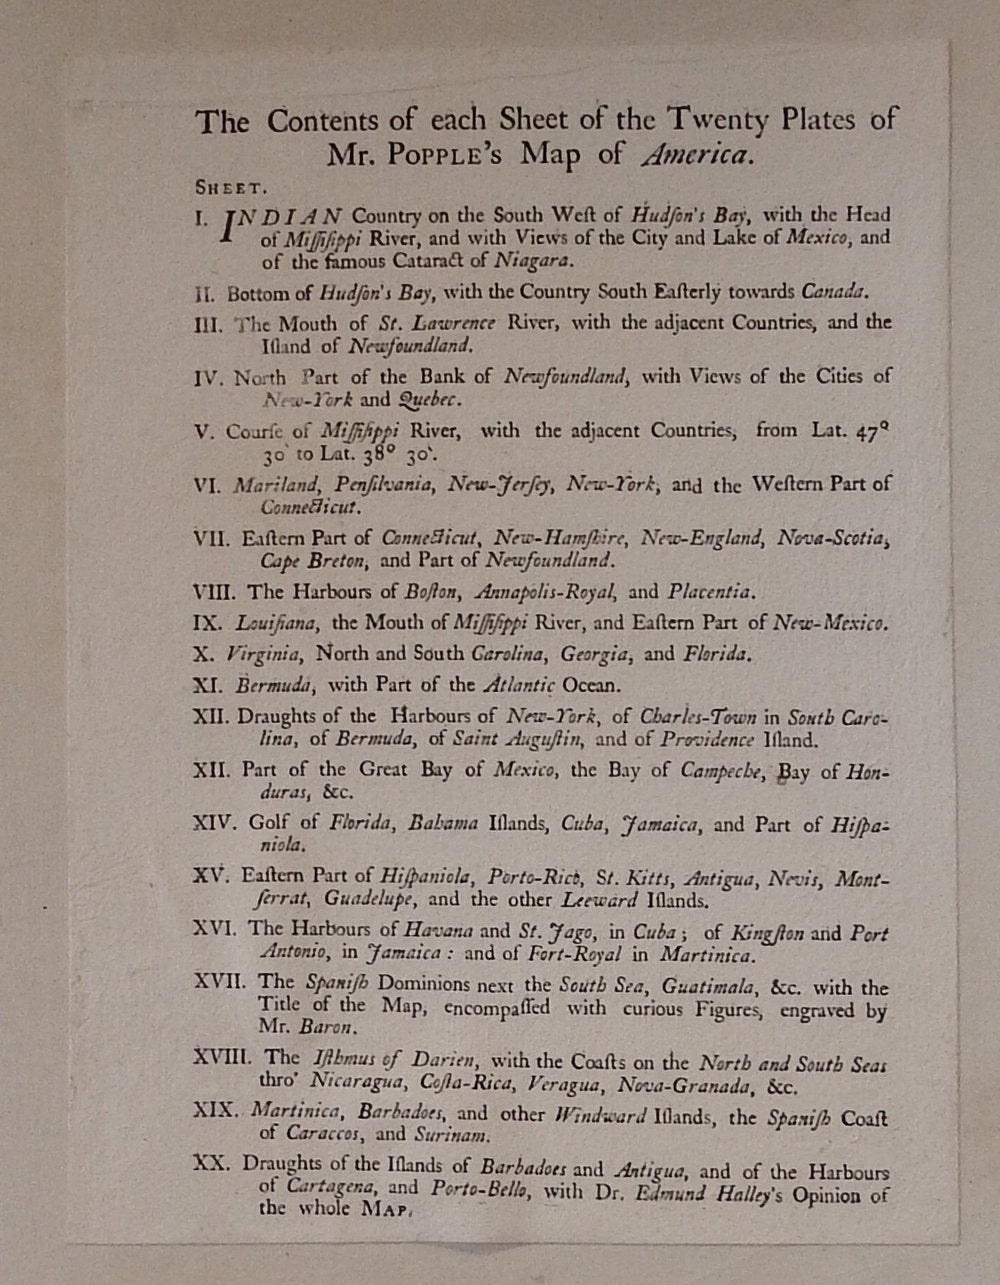 The Contents of each Sheet of the Twenty Plates of
Mr. POPPLE's Map of America.
SHEET.
I. INDIAN Country on the South Weſt of Hudſon's Bay, with the Head
of Miſſiſippi River, and with Views of the City and Lake of Mexico, and
of the famous Cataract of Niagara.
II. Bottom of Hudſon's Bay, with the Country South Eaſterly towards Canada.
III. The Mouth of St. Lawrence River, with the adjacent Countries, and the
Iſland of Newfoundland.
IV. North Part of the Bank of Newfoundland, with Views of the Cities of
New-York and Quebec.
V. Courſe of Miſſiſippi River, with the adjacent Countries, from Lat. 47°
30` to Lat. 38° 30`.
VI. Mariland, Penſilvania, New-Jerſey, New-York, and the Weſtern Part of
Connecticut.
VII. Eaſtern Part of Connecticut, New-Hamſhire, New-England, Nova-Scotia,
Cape Breton, and Part of Newfoundland.
VIII. The Harbours of Boſton, Annapolis-Royal, and Placentia.
IX. Louiſiana, the Mouth of Miſſiſippi River, and Eaſtern Part of New-Mexico.
X. Virginia, North and South Carolina, Georgia, and Florida.
XI. Bermuda, with Part of the Atlantic Ocean.
XII. Draughts of the Harbours of New-York, of Charles-Town in South Caro-
lina, of Bermuda, of Saint Auguſtin, and of Providence Iſland.
XII. Part of the Great Bay of Mexico, the Bay of Campeche, Bay of Hon-
duras, &c.
XIV. Golf of Florida, Bahama Iſlands, Cuba, Jamaica, and Part of Hiſpa-
niola.
XV. Eaſtern Part of Hiſpaniola, Porto-Rico, St. Kitts, Antigua, Nevis, Mont-
ſerrat, Guadelupe, and the other Leeward Iſlands.
XVI. The Harbours of Havana and St. Jago, in Cuba; of Kingſton and Port
Antonio, in Jamaica: and of Fort-Royal in Martinica.
XVII. The Spaniſh Dominions next the South Sea, Guatimala, &c. with the
Title of the Map, encompaſſed with curious Figures, engraved by
Mr. Baron.
XVIII. The Iſthmus of Darien, with the Coaſts on the North and South Seas
thro' Nicaragua, Coſta-Rica, Veragua, Nova-Granada, &c.
XIX. Martinica, Barbadoes, and other Windward Iſlands, the Spaniſh Coaſt
of Caraccos, and Surinam.
XX. Draughts of the Iſlands of Barbadoes and Antigua, and of the Harbours
of Cartagena, and Porto-Bello, with Dr. Edmund Halley's Opinion of
the whole MAP.